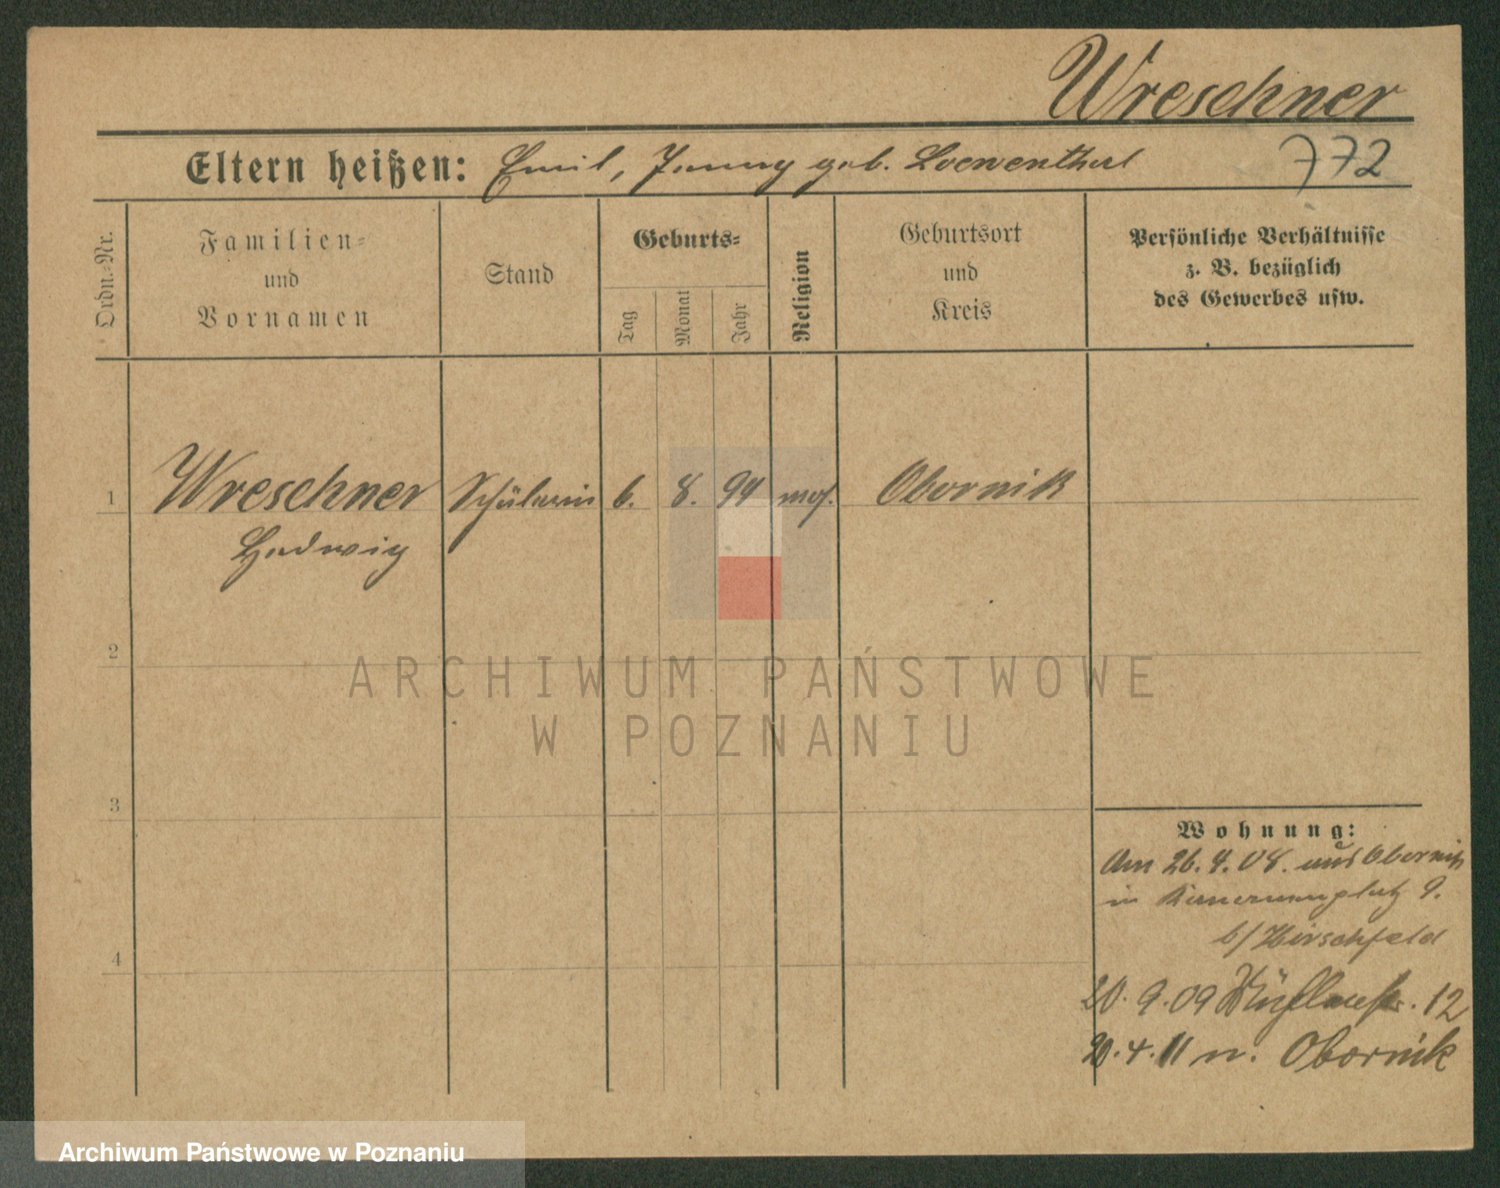 Wreschner
Eltern heißen: Emil, Jenny geb. Loewenthal 772
Ordn.-Nr.
Familien-
und
Vornamen
Stand
Geburts-
Tag
Monat
Jahr
Religion
Geburtsort
und
Kreis
Persönliche Verhältnisse
z. B. bezüglich
des Gewerbes usw.
1 Wreschner Schülerin 6. 8. 94 mos. Obornik
Hedwig
2
ARCHIWUM PAŃSTWOWE
W POZNANIU
3
4
Wohnung:
Am 26.4.08. aus Obornik
in 9.
b/Hirschfeld
20.9.09 12
20.4.11 n. Obornik
Archiwum Państwowe w Poznaniu